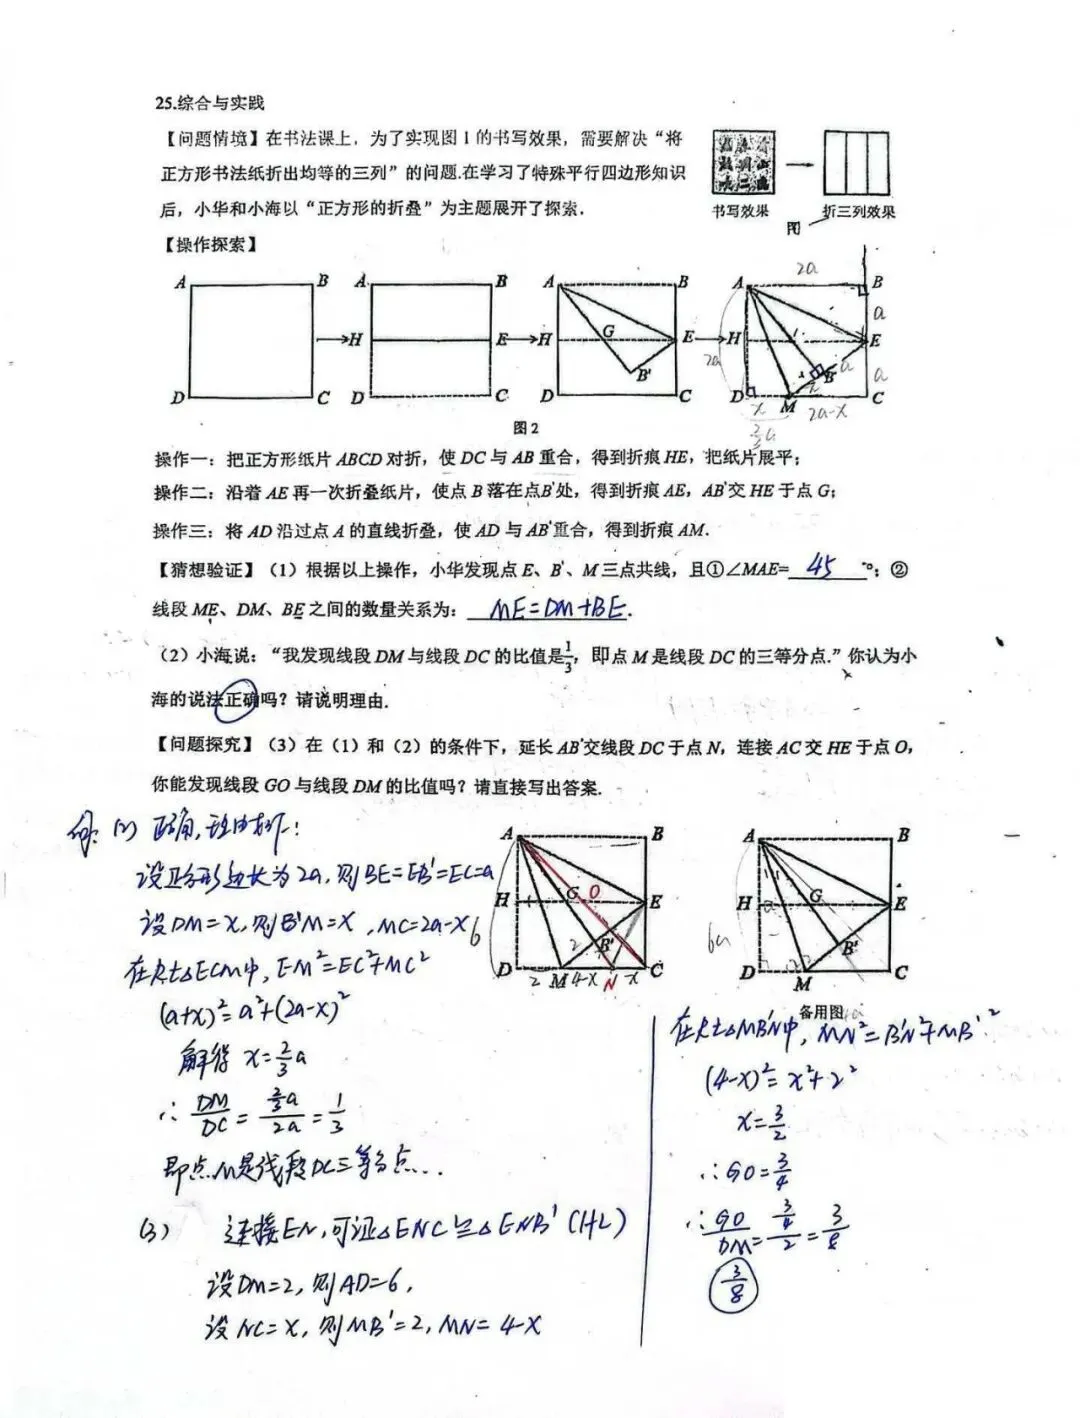 25.综合与实践
【问题情境】在书法课上，为了实现图1的书写效果，需要解决“将
正方形书法纸折出均等的三列”的问题.在学习了特殊平行四边形知识
后，小华和小海以“正方形的折叠”为主题展开了探索.
书写效果
折三列效果
图
【操作探索】
A B
D C
A B
H E
D C
A B
H G E
B'
D C
2a
A B
a
H E
2a
a
B'
a
D M C
x 2a-x
2/3a
图2
操作一：把正方形纸片 ABCD 对折，使 DC 与 AB 重合，得到折痕 HE，把纸片展平；
操作二：沿着 AE 再一次折叠纸片，使点 B 落在点B'处，得到折痕 AE，AB'交 HE 于点 G；
操作三：将 AD 沿过点 A 的直线折叠，使 AD 与 AB'重合，得到折痕 AM.
【猜想验证】（1）根据以上操作，小华发现点 E、B'、M三点共线，且①∠MAE= 45 °；②
线段 ME、DM、BE 之间的数量关系为： ME=DM+BE.
（2）小海说：“我发现线段 DM 与线段 DC 的比值是1/3，即点 M 是线段 DC 的三等分点.”你认为小
海的说法正确吗？请说明理由.
【问题探究】（3）在（1）和（2）的条件下，延长 AB'交线段 DC 于点 N，连接 AC 交 HE 于点 O，
你能发现线段 GO 与线段 DM 的比值吗？请直接写出答案.
解: (2) 正确,理由如下:
设正方形边长为2a,则BE=EB'=EC=a
设DM=x,则B'M=x,MC=2a-x
在Rt△ECM中,EM²=EC²+MC²
(a+x)²=a²+(2a-x)²
解得 x=2/3a
∴ DM/DC = 2/3a / 2a = 1/3
即点M是线段DC三等分点...
(3) 连接EN,可证△ENC≌△ENB'(HL)
设DM=2,则AD=6,
设NC=x,则MB'=2,MN=4-x
A B
H G O E
6
2 B'
D M N C
2 4-x x
A B
H G E
6a
B'
D M C
备用图
在Rt△MB'N中,MN²=B'N²+MB'²
(4-x)²=x²+2²
x=3/2
∴GO=3/4
∴ GO/DM = 3/4 / 2 = 3/8
3/8